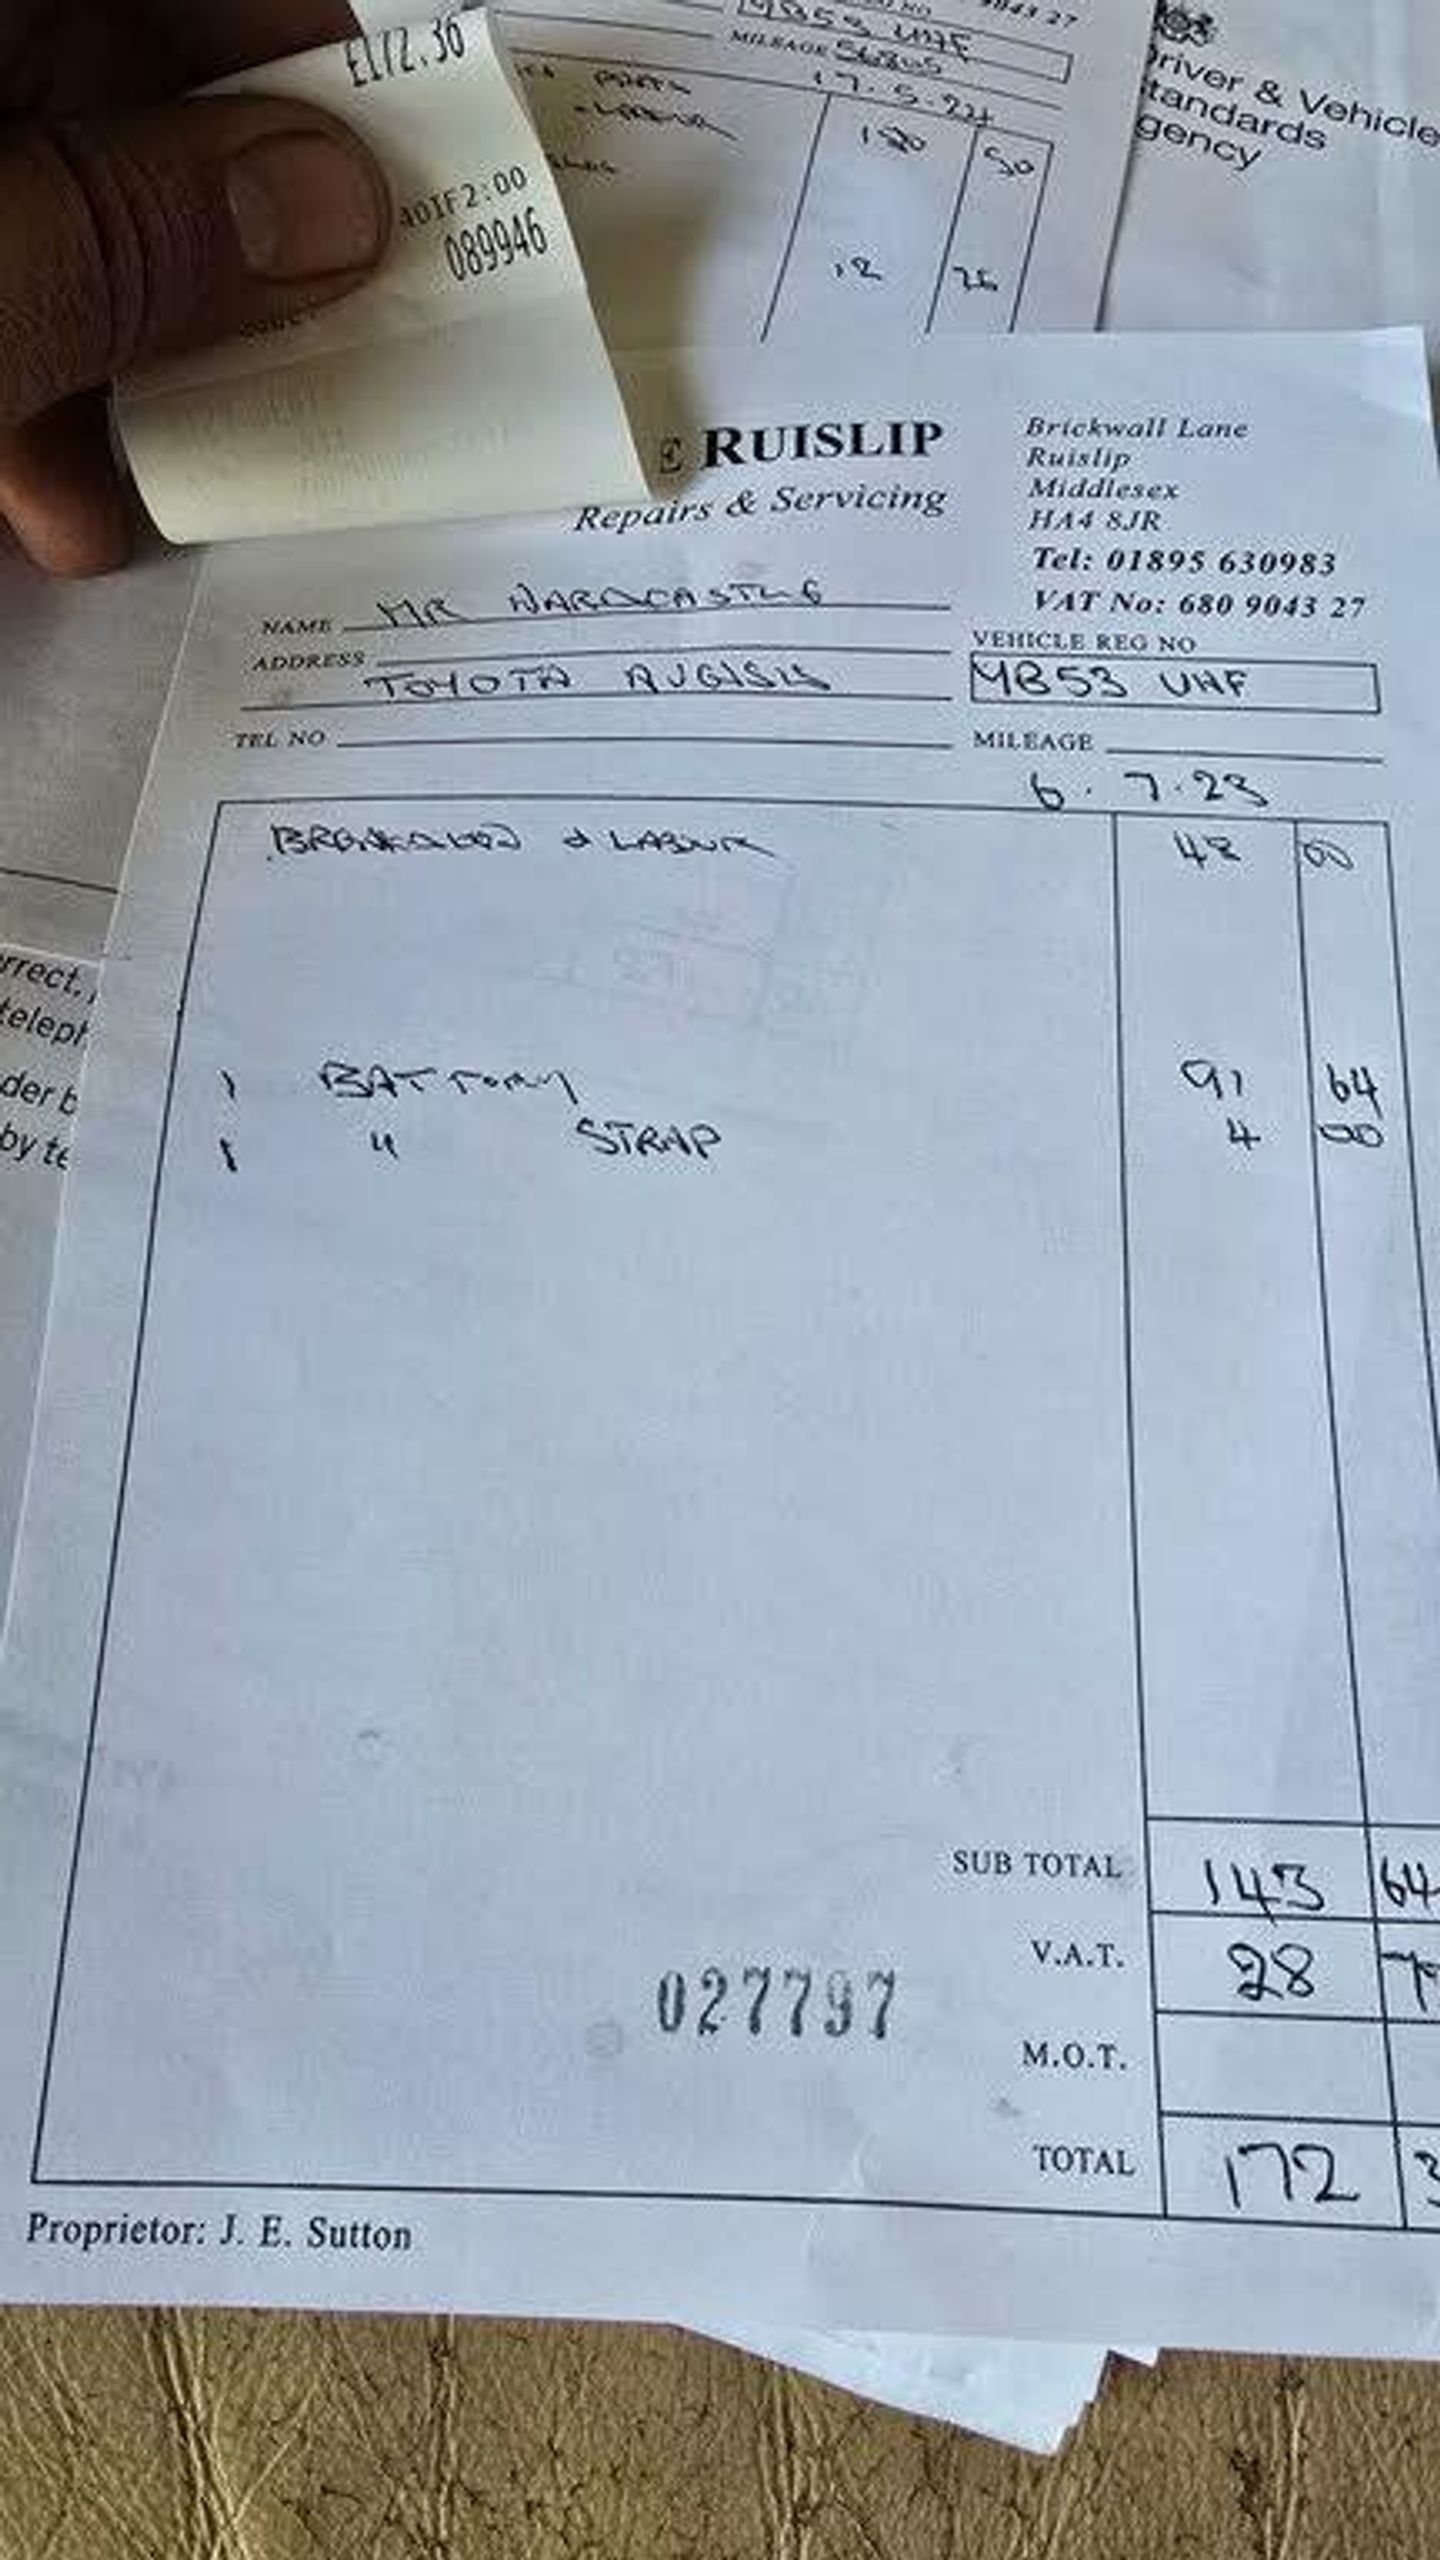 £172.36
089946
9043 27
MILEAGE
17.5.22
50
12
Driver & Vehicle
Standards
Agency
E RUISLIP
Repairs & Servicing
Brickwall Lane
Ruislip
Middlesex
HA4 8JR
Tel: 01895 630983
VAT No: 680 9043 27
NAME MR
ADDRESS
VEHICLE REG NO
TOYOTA
YB53 UHF
TEL NO
MILEAGE
6.7.23
& LABOUR 48 00
1 BATTERY 91 64
1 " STRAP 4 00
rrect,
teleph
der b
by te
SUB TOTAL 143 64
V.A.T. 28 7
027797
M.O.T.
TOTAL 172 3
Proprietor: J. E. Sutton